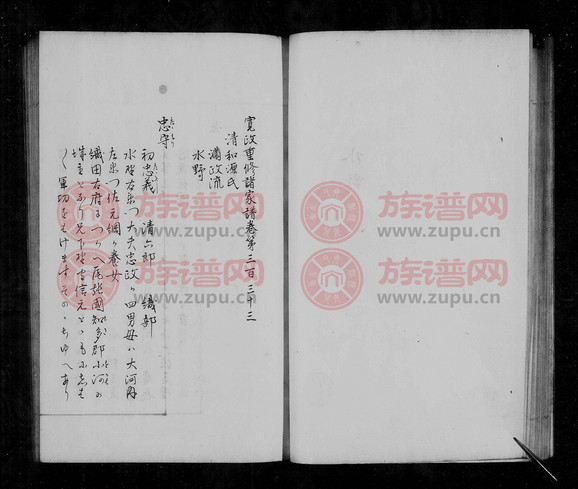 寛政重修諸家譜巻第三百三十三
清和源氏
満政流
水野
忠守
初忠義 清六郎 織部
水野右衛門大夫忠政が四男母は大河内
左衛門佐元綱が養女
織田右府につかへ尾張國知多郡小河の
城主となり兄下野守信元とゝもに
軍功を
族谱网
www.zupu.cn
族谱网
www.zupu.cn
族谱网
www.zupu.cn
族谱网
www.zupu.cn